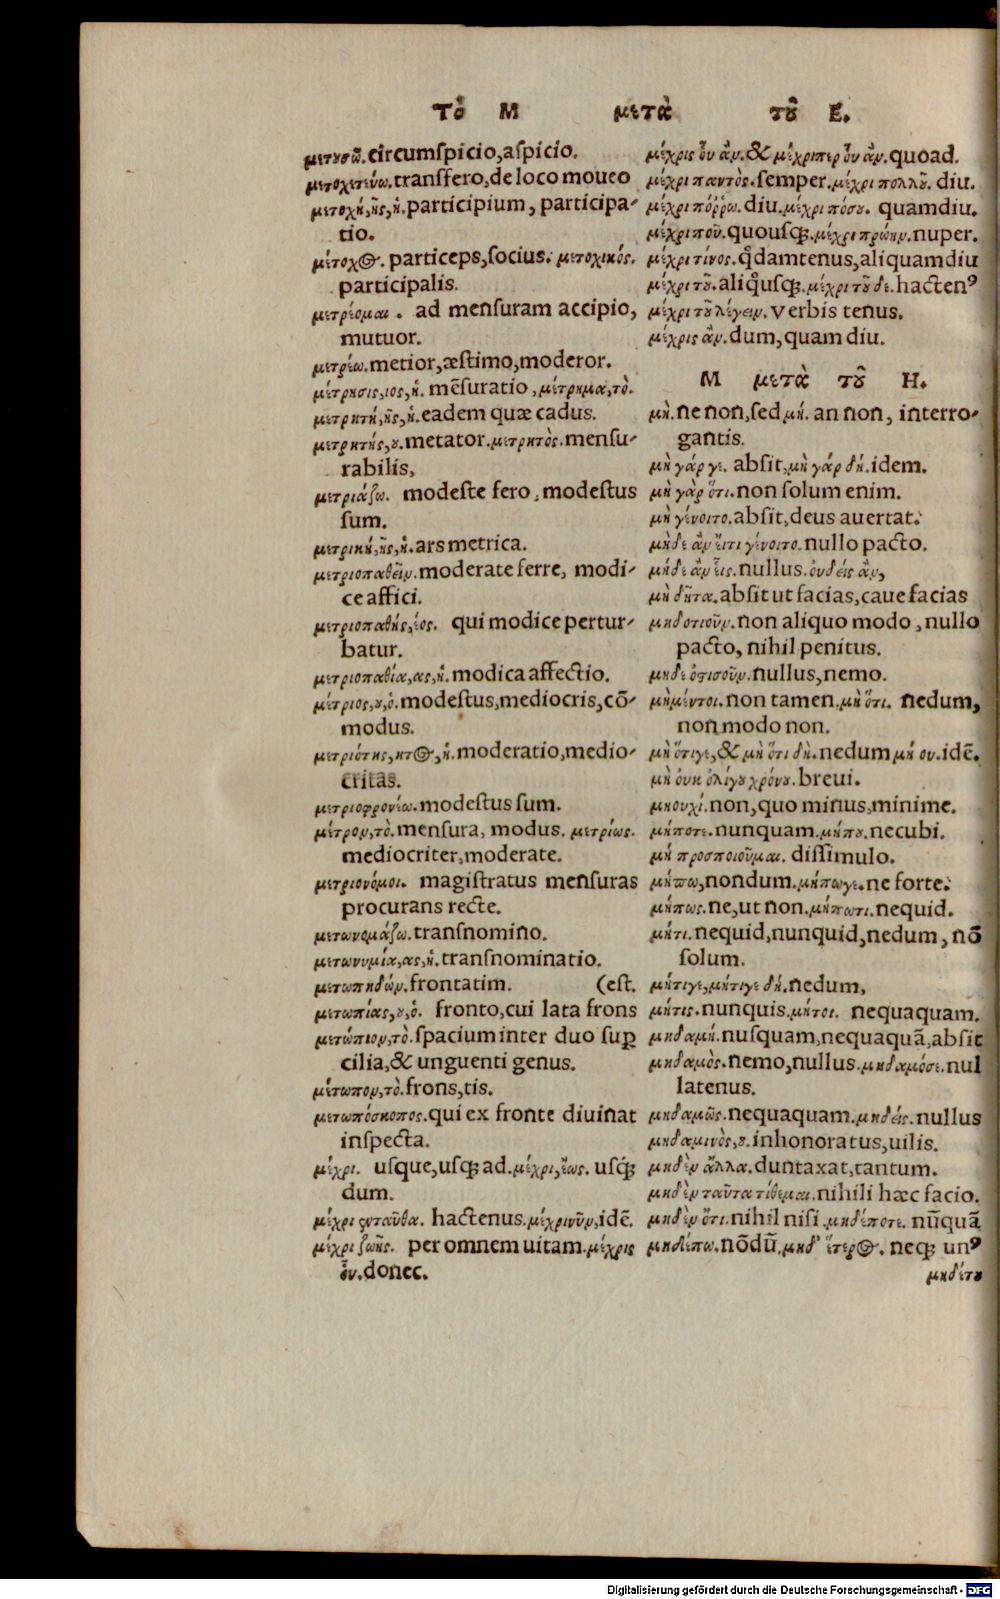 Τὸ Μ μετὰ τοῦ Ε.
μετουσῶ. circumspicio, aspicio.
μετοχετεύω. transfero, de loco moueo
μετοχή, ῆς, ἡ. participium, participa-
tio.
μέτοχος. particeps, socius. μετοχικός.
participalis.
μετρέομαι. ad mensuram accipio,
mutuor.
μετρέω. metior, æstimo, moderor.
μέτρησις, ιος, ἡ. mēsuratio, μέτρημα, τὸ.
μετρητή, ῆς, ἡ. eadem quæ cadus.
μετρητής, ου. metator. μετρητὸς. mensu-
rabilis,
μετριάζω. modeste fero, modestus
sum.
μετρική, ῆς, ἡ. ars metrica.
μετριοπαθεῖν. moderate ferre, modi-
ce affici.
μετριοπαθής, έος. qui modice pertur-
batur.
μετριοπαθία, ας, ἡ. modica affectio.
μέτριος, ου, ὁ. modestus, mediocris, cō-
modus.
μετριότης, ητος, ἡ. moderatio, medio-
critas.
μετριοφρονέω. modestus sum.
μέτρον, τὸ. mensura, modus. μετρίως.
mediocriter, moderate.
μετριονόμοι. magistratus mensuras
procurans recte.
μετωνομάζω. transnomino.
μετωνυμία, ας, ἡ. transnominatio.
μετωπηδόν. frontatim. (est.
μετωπίας, ου, ὁ. fronto, cui lata frons
μετώπιον, τὸ. spacium inter duo suꝑ
cilia, & unguenti genus.
μέτωπον, τὸ. frons, tis.
μετωπόσκοπος. qui ex fronte diuinat
inspecta.
μέχρι. usque, usqꝫ ad. μέχρι, ἕως. usqꝫ
dum.
μέχρι ἐνταῦθα. hactenus. μέχρι νῦν, idē.
μέχρι ζωῆς. per omnem uitam. μέχρις
οὖν. donec.
μέχρις οὖν ἂν. & μέχριπερ οὖν ἂν. quoad.
μέχρι παντὸς. semper. μέχρι πολλοῦ. diu.
μέχρι πόῤῥω. diu. μέχρι πόσου. quamdiu.
μέχρι ποῦ. quousqꝫ. μέχρι πρώην. nuper.
μέχρι τίνος. q̊damtenus, aliquamdiu
μέχρι τοῦ. aliq̊usqꝫ. μέχρι τοῦ δε. hactenꝰ
μέχρι τοῦ λέγειν. verbis tenus.
μέχρις ἂν. dum, quam diu.
Μ μετὰ τοῦ Η.
μὴ. ne non, sed μή. an non, interro-
gantis.
μὴ γάρ γε. absit, μὴ γάρ δή. idem.
μὴ γὰρ ὅτι. non solum enim.
μὴ γένοιτο. absit, deus auertat.
μηδὲ ἂν εἴ τι γένοιτο. nullo pacto.
μηδὲ ἂν εἷς. nullus. οὐδείς ἂν,
μὴ δῆτα. absit ut facias, caue facias
μηδοτιοῦν. non aliquo modo, nullo
pacto, nihil penitus.
μηδε ὁτισοῦν. nullus, nemo.
μὴμέντοι. non tamen. μὴ ὅτι. nedum,
non modo non.
μὴ ὅτιγε, & μὴ ὅτι δὴ. nedum μή ου. idē.
μὴ οὐκ ὀλίγου χρόνου. breui.
μηουχί. non, quo minus, minime.
μήποτε. nunquam. μήπου. necubi.
μή προσποιοῦμαι. dissimulo.
μήπω, nondum. μήπωγε. ne forte.
μήπως. ne, ut non. μήπωτι. nequid.
μήτι. nequid, nunquid, nedum, nō
solum.
μήτιγε, μήτιγε δή. nedum,
μήτις. nunquis. μήτοι. nequaquam.
μηδαμή. nusquam, nequaquā, absit
μηδαμὸς. nemo, nullus. μηδαμόσε. nul
latenus.
μηδαμῶς. nequaquam. μηδείς. nullus
μηδαμινὸς, ου. inhonoratus, uilis.
μηδὲν ἄλλα. duntaxat, tantum.
μηδὲν ταῦτα τίθεμαι. nihili hæc facio.
μηδὲν ὅτι. nihil nisi. μηδέποτε. nūquā
μηδέπω. nōdū. μηδ' ἕτερος. neqꝫ unꝰ
μηδέτου
Digitalisierung gefördert durch die Deutsche Forschungsgemeinschaft - DFG